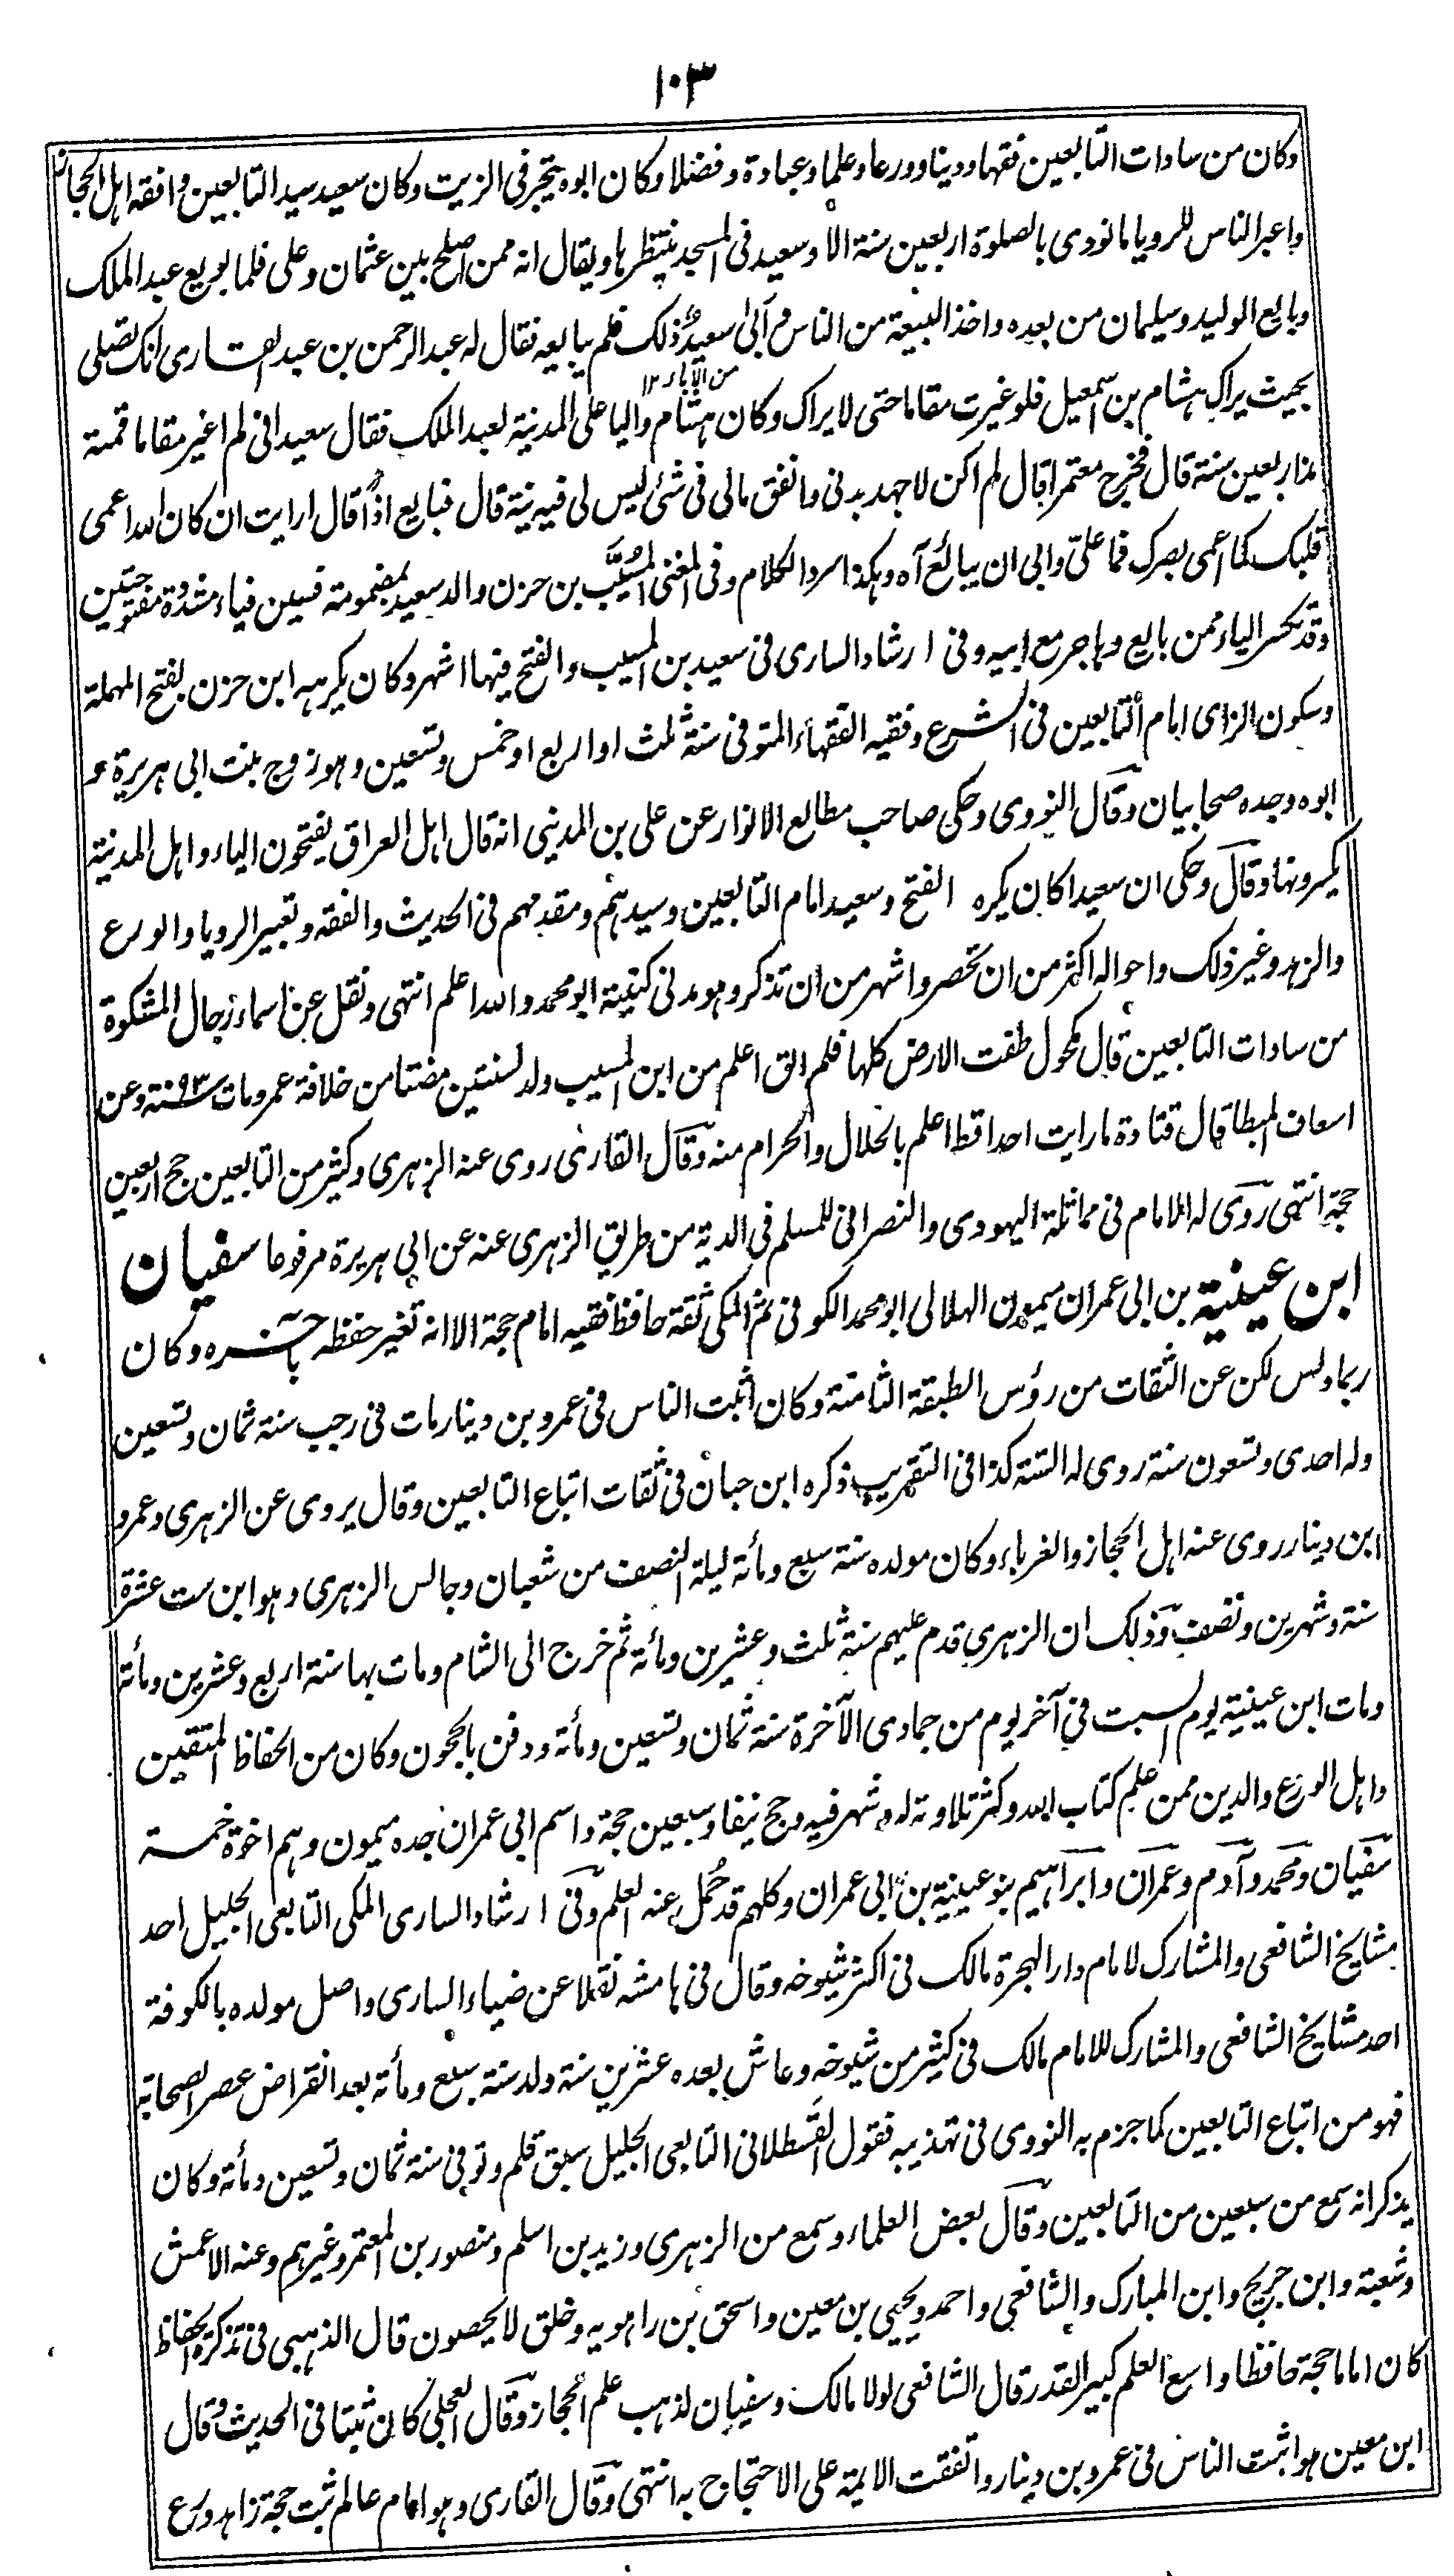 ١٠٣
وكان من سادات التابعين فقها ودينا وورعا وعلما وعبادة وفضلا وكان ابوه يتجر فى الزيت وكان سعيد سيد التابعين وافقه اهل الحجاز
واعبر الناس للرويا ما نودى بالصلوة اربعين سنة الا وسعيد فى المسجد ينتظرها ويقال انه ممن اصلح بين عثمان وعلى فلما بويع عبد الملك
وبايع الوليد وسليمان من بعده واخذ البيعة من الناس ابى سعيد ذلك فلم يبايعه فقال له عبد الرحمن بن عبد القارى انك تصلى
من الاباء ١٢
بحيث يراك هشام بن اسمعيل فلو غيرت مقاما حتى لا يراك وكان هشام واليا على المدينة لعبد الملك فقال سعيد انى لم اغير مقاما قمته
منذ اربعين سنة قال فخرج معتمرا قال لم اكن لاجهد بدنى وانفق مالى فى شئ ليس لى فيه نية قال فبايع اذا قال ارايت ان كان الله اعمى
قلبك كما اعمى بصرك فما علىّ وابى ان يبائع آه وهكذا سرد الكلام وفى المغنى المُسيَّب بن حزن والد سعيد بمضمومة فسين فياء مشددة مفتوحتين
وقد تكسر الياء ممن بايع وهاجر مع ابيه وفى ارشاد السارى فى سعيد بن المسيب والفتح فيها اشهر وكان يكرهه ابن حزن بفتح المهملة
وسكون الزاى امام التابعين فى الشرع وفقيه الفقهاء المتوفى سنة ثلث او اربع او خمس وتسعين وهو زوج بنت ابى هريرة و
ابوه وجده صحابيان وقال النووى وحكى صاحب مطالع الانوار عن على بن المدينى انه قال اهل العراق يفتحون الياء واهل المدينة
يكسرونها وقال وحكى ان سعيدا كان يكره الفتح وسعيد امام التابعين وسيدهم ومقدمهم فى الحديث والفقه وتعبير الرويا والورع
والزهد وغير ذلك واحواله اكثر من ان تحصر واشهر من ان تذكر وهو مدنى كنيته ابو محمد والله اعلم انتهى ونقل عن اسماء رجال المشكوة
من سادات التابعين قال مكحول طفت الارض كلها فلم الق اعلم من ابن المسيب ولد لسنتين مضتا من خلافة عمر ومات سنة ٩٣ وعن
اسعاف المبطا قال قتادة ما رايت احدا قط اعلم بالحلال والحرام منه وقال القارى روى عنه الزهرى وكثير من التابعين حج اربعين
حجة انتهى روى له الامام فى مماثلة اليهودى والنصرانى للمسلم فى الدية من طريق الزهرى عنه عن ابى هريرة مرفوعا سفيان
ابن عيينة بن ابى عمران ميمون الهلالى ابو محمد الكوفى ثم المكى ثقة حافظ فقيه امام حجة الا انه تغير حفظه بآخره وكان
ربما دلس لكن عن الثقات من رؤس الطبقة الثامنة وكان اثبت الناس فى عمرو بن دينار مات فى رجب سنة ثمان وتسعين
وله احدى وتسعون سنة روى له الستة كذا فى التقريب وذكره ابن حبان فى ثقات اتباع التابعين وقال يروى عن الزهرى وعمرو
ابن دينار روى عنه اهل الحجاز والغرباء وكان مولده سنة سبع ومأة ليلة النصف من شعبان وجالس الزهرى وهو ابن ست عشرة
سنة وشهرين ونصف وذلك ان الزهرى قدم عليهم سنة ثلث وعشرين ومأة ثم خرج الى الشام ومات بها سنة اربع وعشرين ومأة
ومات ابن عيينة يوم السبت فى آخر يوم من جمادى الآخرة سنة ثمان وتسعين ومأة ودفن بالحجون وكان من الحفاظ المتقنين
واهل الورع والدين ممن علم كتاب الله وكثر تلاوته له وشهر فيه وحج نيفا وسبعين حجة واسم ابى عمران جده ميمون وهم اخوة خمسة
سفيان ومحمد وآدم وعمران وابراهيم بنو عيينة بن ابى عمران وكلهم قد حُمل عنه العلم وفى ارشاد السارى المكى التابعى الجليل احد
مشايخ الشافعى والمشارك لامام دار الهجرة مالك فى اكثر شيوخه وقال فى هامشه نقلا عن ضياء السارى واصل مولده بالكوفة
احد مشايخ الشافعى والمشارك للامام مالك فى كثير من شيوخه وعاش بعده عشرين سنة ولد سنة سبع ومأة بعد انقراض عصر الصحابة
فهو من اتباع التابعين كما جزم به النووى فى تهذيبه فقول القسطلانى التابعى الجليل سبق قلم وتوفى سنة ثمان وتسعين ومأة وكان
يذكر انه سمع من سبعين من التابعين وقال بعض العلماء وسمع من الزهرى وزيد بن اسلم ومنصور بن المعتمر وغيرهم وعنه الاعمش
وشعبة وابن جريج وابن المبارك والشافعى واحمد ويحيى بن معين واسحق بن راهويه وخلق لا يحصون قال الذهبى فى تذكرة الحفاظ
كان اماما حجة حافظا واسع العلم كبير القدر قال الشافعى لولا مالك وسفيان لذهب علم الحجاز وقال العجلى كان ثبتا فى الحديث وقال
ابن معين هو اثبت الناس فى عمرو بن دينار واتفقت الايمة على الاحتجاج به انتهى وقال القارى وهو امام عالم ثبت حجة زاهد ورع